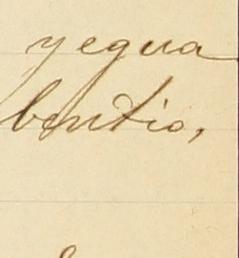 yegua
bentio,